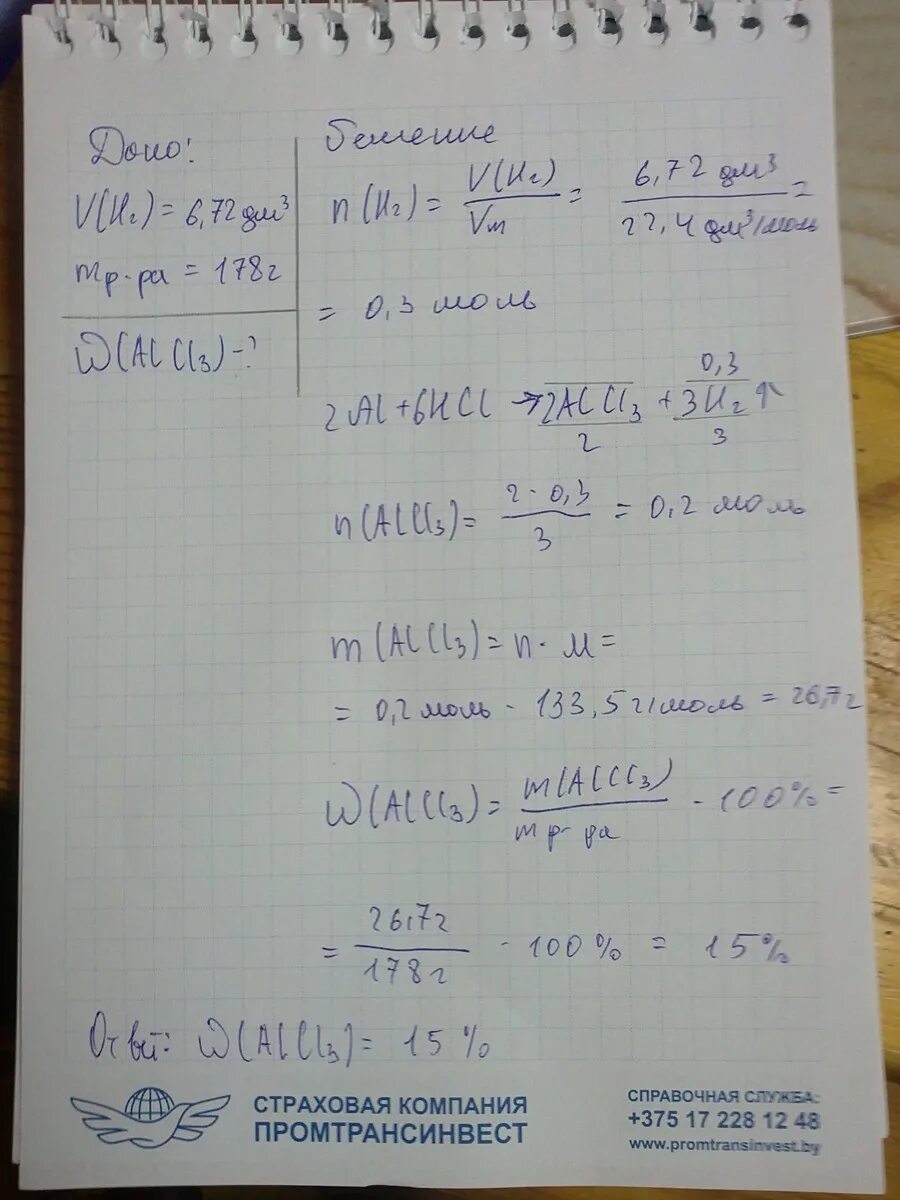 Дано:
V(H₂) = 6,72 дм³
m р-ра = 178 г
W(AlCl₃) - ?
Решение
n(H₂) = V(H₂) / Vm = 6,72 дм³ / 22,4 дм³/моль =
= 0,3 моль
0,3
2Al + 6HCl → 2AlCl₃ + 3H₂ ↑
2 3
n(AlCl₃) = 2 · 0,3 / 3 = 0,2 моль
m(AlCl₃) = n · M =
= 0,2 моль · 133,5 г/моль = 26,7 г
W(AlCl₃) = m(AlCl₃) / m р-ра · 100% =
= 26,7 г / 178 г · 100% = 15%
Ответ: W(AlCl₃) = 15%
СТРАХОВАЯ КОМПАНИЯ
ПРОМТРАНСИНВЕСТ
СПРАВОЧНАЯ СЛУЖБА:
+375 17 228 12 48
www.promtransinvest.by